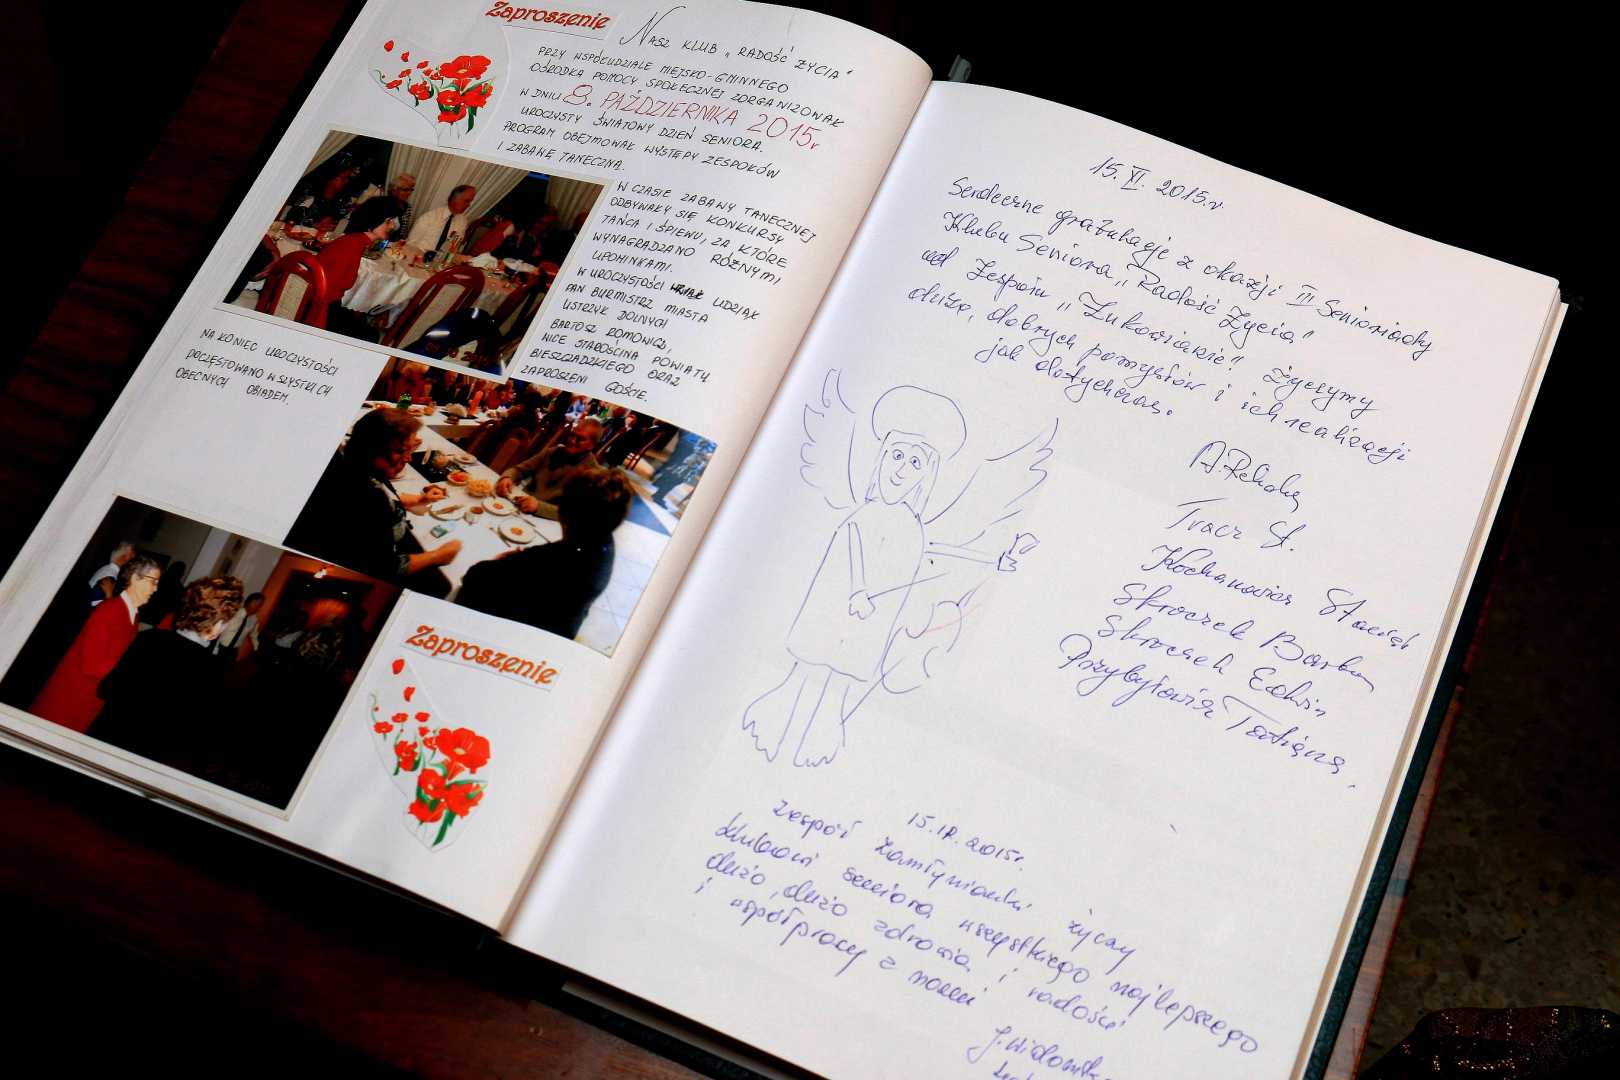 Zaproszenie
NASZ KLUB „RADOŚĆ ŻYCIA"
PRZY WSPÓŁUDZIALE MIEJSKO-GMINNEGO
OŚRODKA POMOCY SPOŁECZNEJ ZORGANIZOWAŁ
W DNIU 8. PAŹDZIERNIKA 2015r
UROCZYSTY ŚWIATOWY DZIEŃ SENIORA.
PROGRAM OBEJMOWAŁ WYSTĘPY ZESPOŁÓW
I ZABAWĘ TANECZNĄ.
W CZASIE ZABAWY TANECZNEJ
ODBYWAŁY SIĘ KONKURSY
TAŃCA I ŚPIEWU, ZA KTÓRE
WYNAGRADZANO RÓŻNYMI
UPOMINKAMI.
W UROCZYSTOŚCI WZIĄŁ UDZIAŁ
PAN BURMISTRZ MIASTA
USTRZYK DOLNYCH
BARTOSZ ROMOWICZ,
WICE STAROŚCINA POWIATU
BIESZCZADZKIEGO ORAZ
ZAPROSZENI GOŚCIE.
NA KONIEC UROCZYSTOŚCI
POCZĘSTOWANO WSZYSTKICH
OBECNYCH OBIADEM.
Zaproszenie
15. XI. 2015.r
Serdeczne gratulacje z okazji III Senioriady
Klubu Seniora „Radość Życia"
od Zespołu „Żukowianie". Życzymy
dużo, dobrych pomysłów i ich realizacji
jak dotychczas.
Tracz St.
Skroczek
Skroczek Edwin
15.IX.2015r.
Zespół Zamłynianki życzy
klubowi seniora wszystkiego najlepszego
dużo, dużo zdrowia i radości
i współpracy z nami